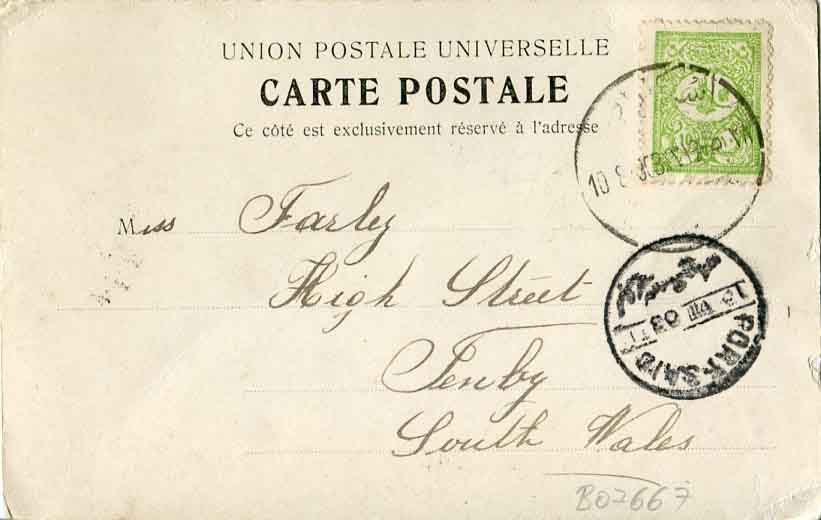 UNION POSTALE UNIVERSELLE
CARTE POSTALE
Ce côté est exclusivement réservé à l'adresse
Miss Farley
High Street
Tenby
South Wales
PORT-SAID
13 VIII 03
B07667